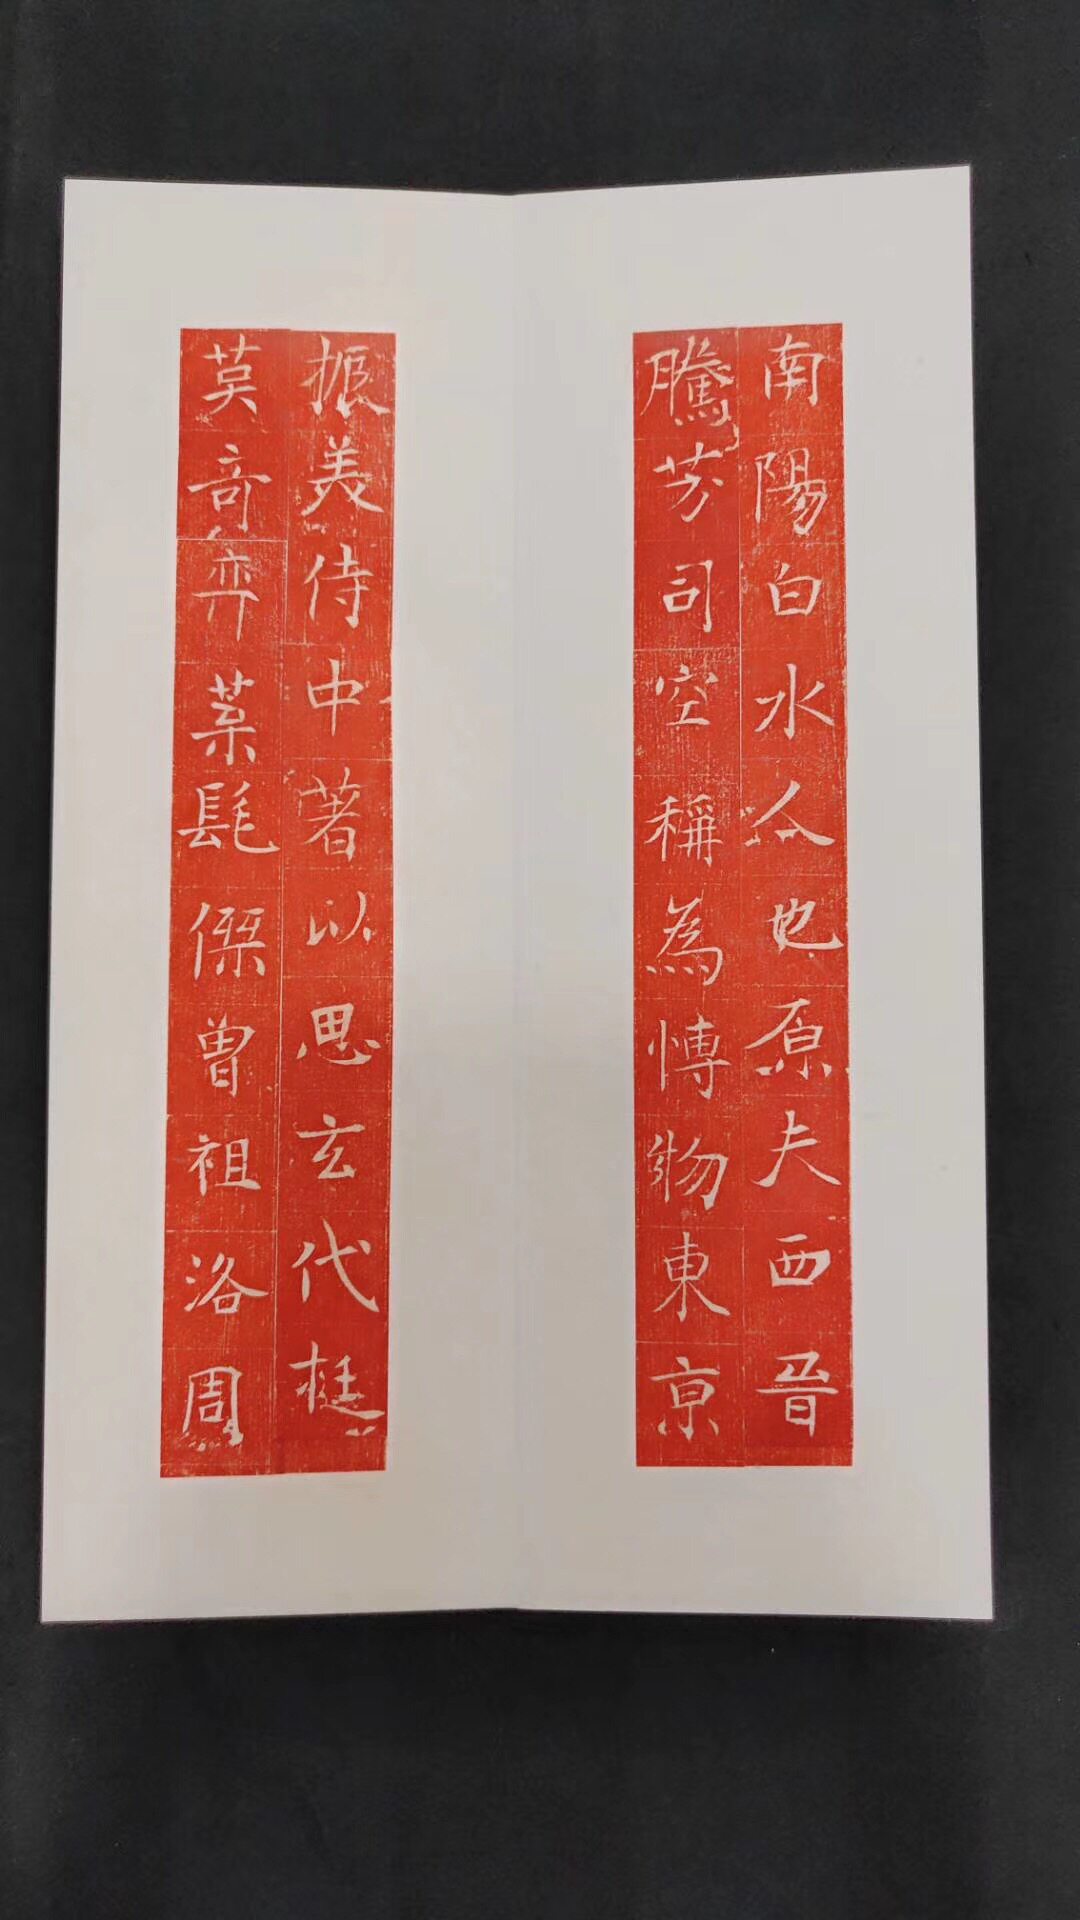 南陽白水人也原夫西晉
騰芳司空稱為愽物東京
振美侍中著以思玄代挻
英奇弈葉髦傑曾祖洛周